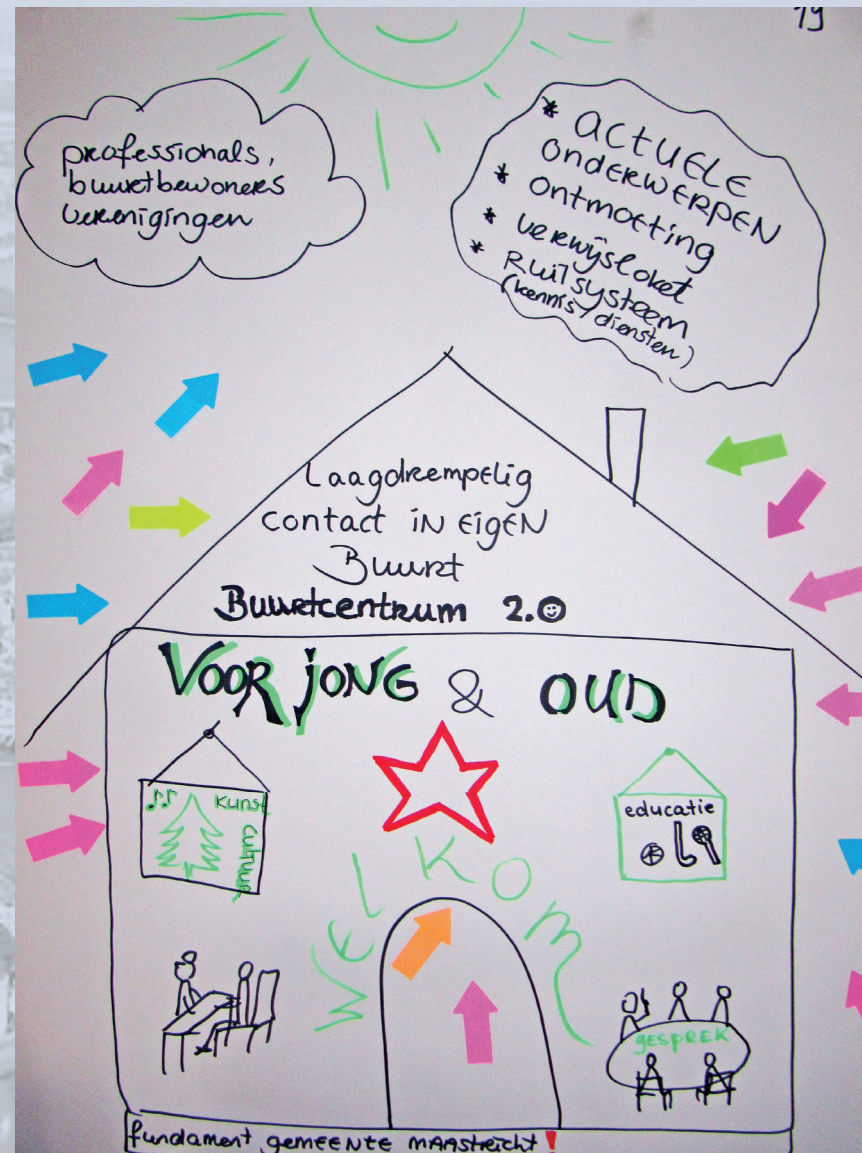 19
professionals,
buurtbewoners
verenigingen
* ACTUELE
ONDERWERPEN
* ontmoeting
* verwijsloket
* Ruilsysteem
(kennis/diensten)
Laagdrempelig
contact in eigen
Buurt
Buurtcentrum 2.0
VOOR jONG & OUD
kunst
cultuur
educatie
Welkom
gesprek
fundament gemeente maastricht!